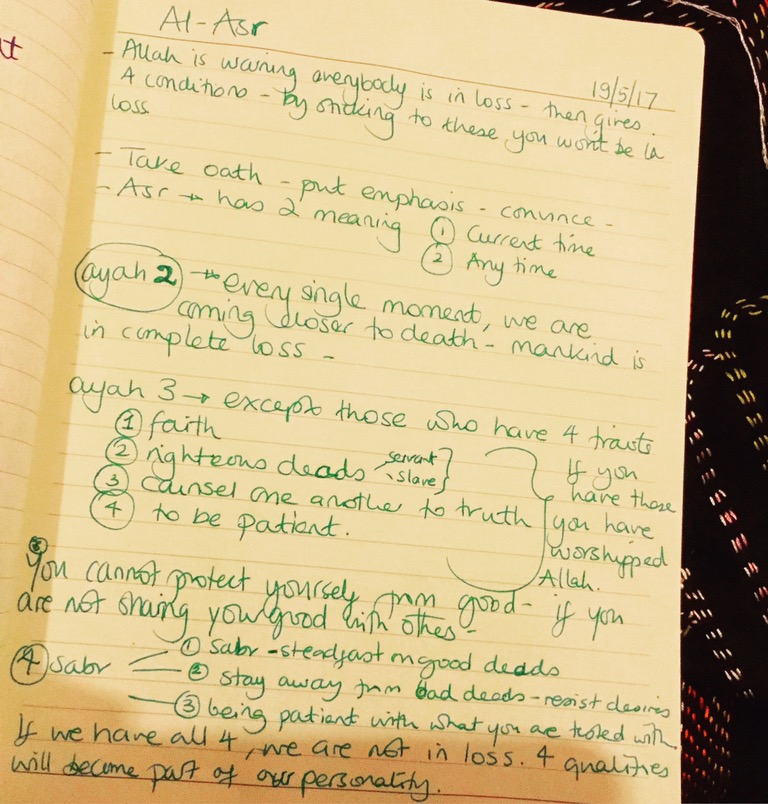 at
Al-Asr
19/5/17
- Allah is warning everybody is in loss - then gives.
4 conditions - by sticking to these you won't be in
loss.
- Take oath - put emphasis - convince -
- Asr → has 2 meaning ① Current time
② Any time
ayah 2 → every single moment, we are
coming closer to death - mankind is
in complete loss -
ayah 3 → except those who have 4 traits
① faith
② righteous deads servant
slave
③ counsel one anothe to truth
④ to be patient.
If you
have those
you have
worshipped
Allah.
③
You cannot protect yourself from good - if you
are not sharing your good with othes -
④ sabr ① sabr - steadfast on good deads
② stay away from bad deads - resist desires
③ being patient with what you are tested with
If we have all 4, we are not in loss. 4 qualities
will become part of our personality.